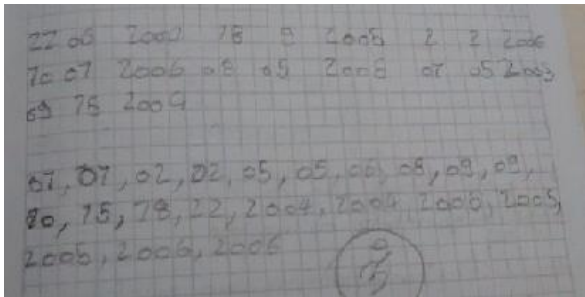 22 06 2007 18 9 2005 2 2 2006
10 07 2006 08 05 2008 07 05 2003
09 15 2004
07, 07, 02, 02, 05, 05, 06, 08, 09, 09,
10, 15, 18, 22, 2004, 2004, 2006, 2005,
2005, 2006, 2006